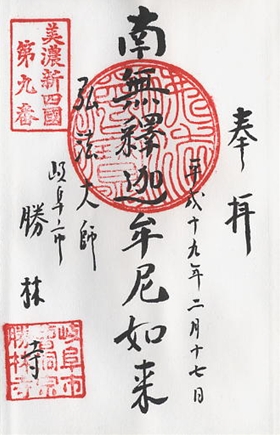 奉拝
平成十九年二月十七日
南無釋迦牟尼如来
弘法大師
岐阜市
勝林寺
美濃新四國
第九番
岐阜市
曹洞宗
勝林寺